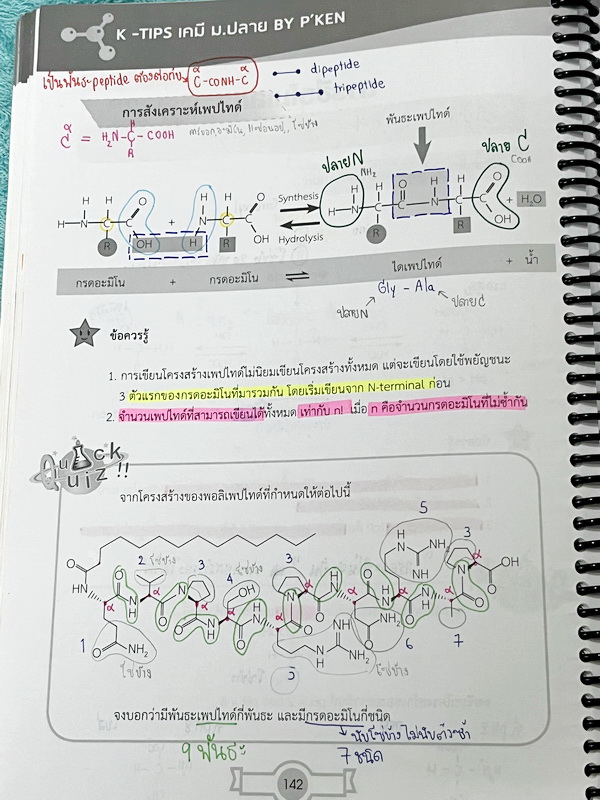 K -TIPS เคมี ม.ปลาย BY P'KEN
เป็นพันธะ-peptide ต้องต่อกับ C-CONH-C
α α
dipeptide
tripeptide
การสังเคราะห์เพปไทด์
C = H₂N-C-COOH
α
R
พันธะเพปไทด์
ปลายN
NH₂
ปลาย C
COOH
Synthesis
Hydrolysis
H-N-C-C O OH R + H N-C-C O OH R
H-N-C-C-N-C-C O OH R R + H₂O
กรดอะมิโน + กรดอะมิโน ⇌ ไดเพปไทด์ + น้ำ
Gly - Ala
ปลายN ปลายC
ข้อควรรู้
1. การเขียนโครงสร้างเพปไทด์ไม่นิยมเขียนโครงสร้างทั้งหมด แต่จะเขียนโดยใช้พยัญชนะ
3 ตัวแรกของกรดอะมิโนที่มารวมกัน โดยเริ่มเขียนจาก N-terminal ก่อน
2. จำนวนเพปไทด์ที่สามารถเขียนได้ทั้งหมด เท่ากับ n! เมื่อ n คือจำนวนกรดอะมิโนที่ไม่ซ้ำกัน
Quick Quiz !!
จากโครงสร้างของพอลิเพปไทด์ที่กำหนดให้ต่อไปนี้
1 2 โซ่ข้าง 3 4 โซ่ข้าง 3 5 3
โซ่ข้าง 5 โซ่ข้าง 6 7
จงบอกว่ามีพันธะเพปไทด์กี่พันธะ และมีกรดอะมิโนกี่ชนิด
นับโซ่ข้าง ไม่นับตัวซ้ำ
9 พันธะ
7 ชนิด
142